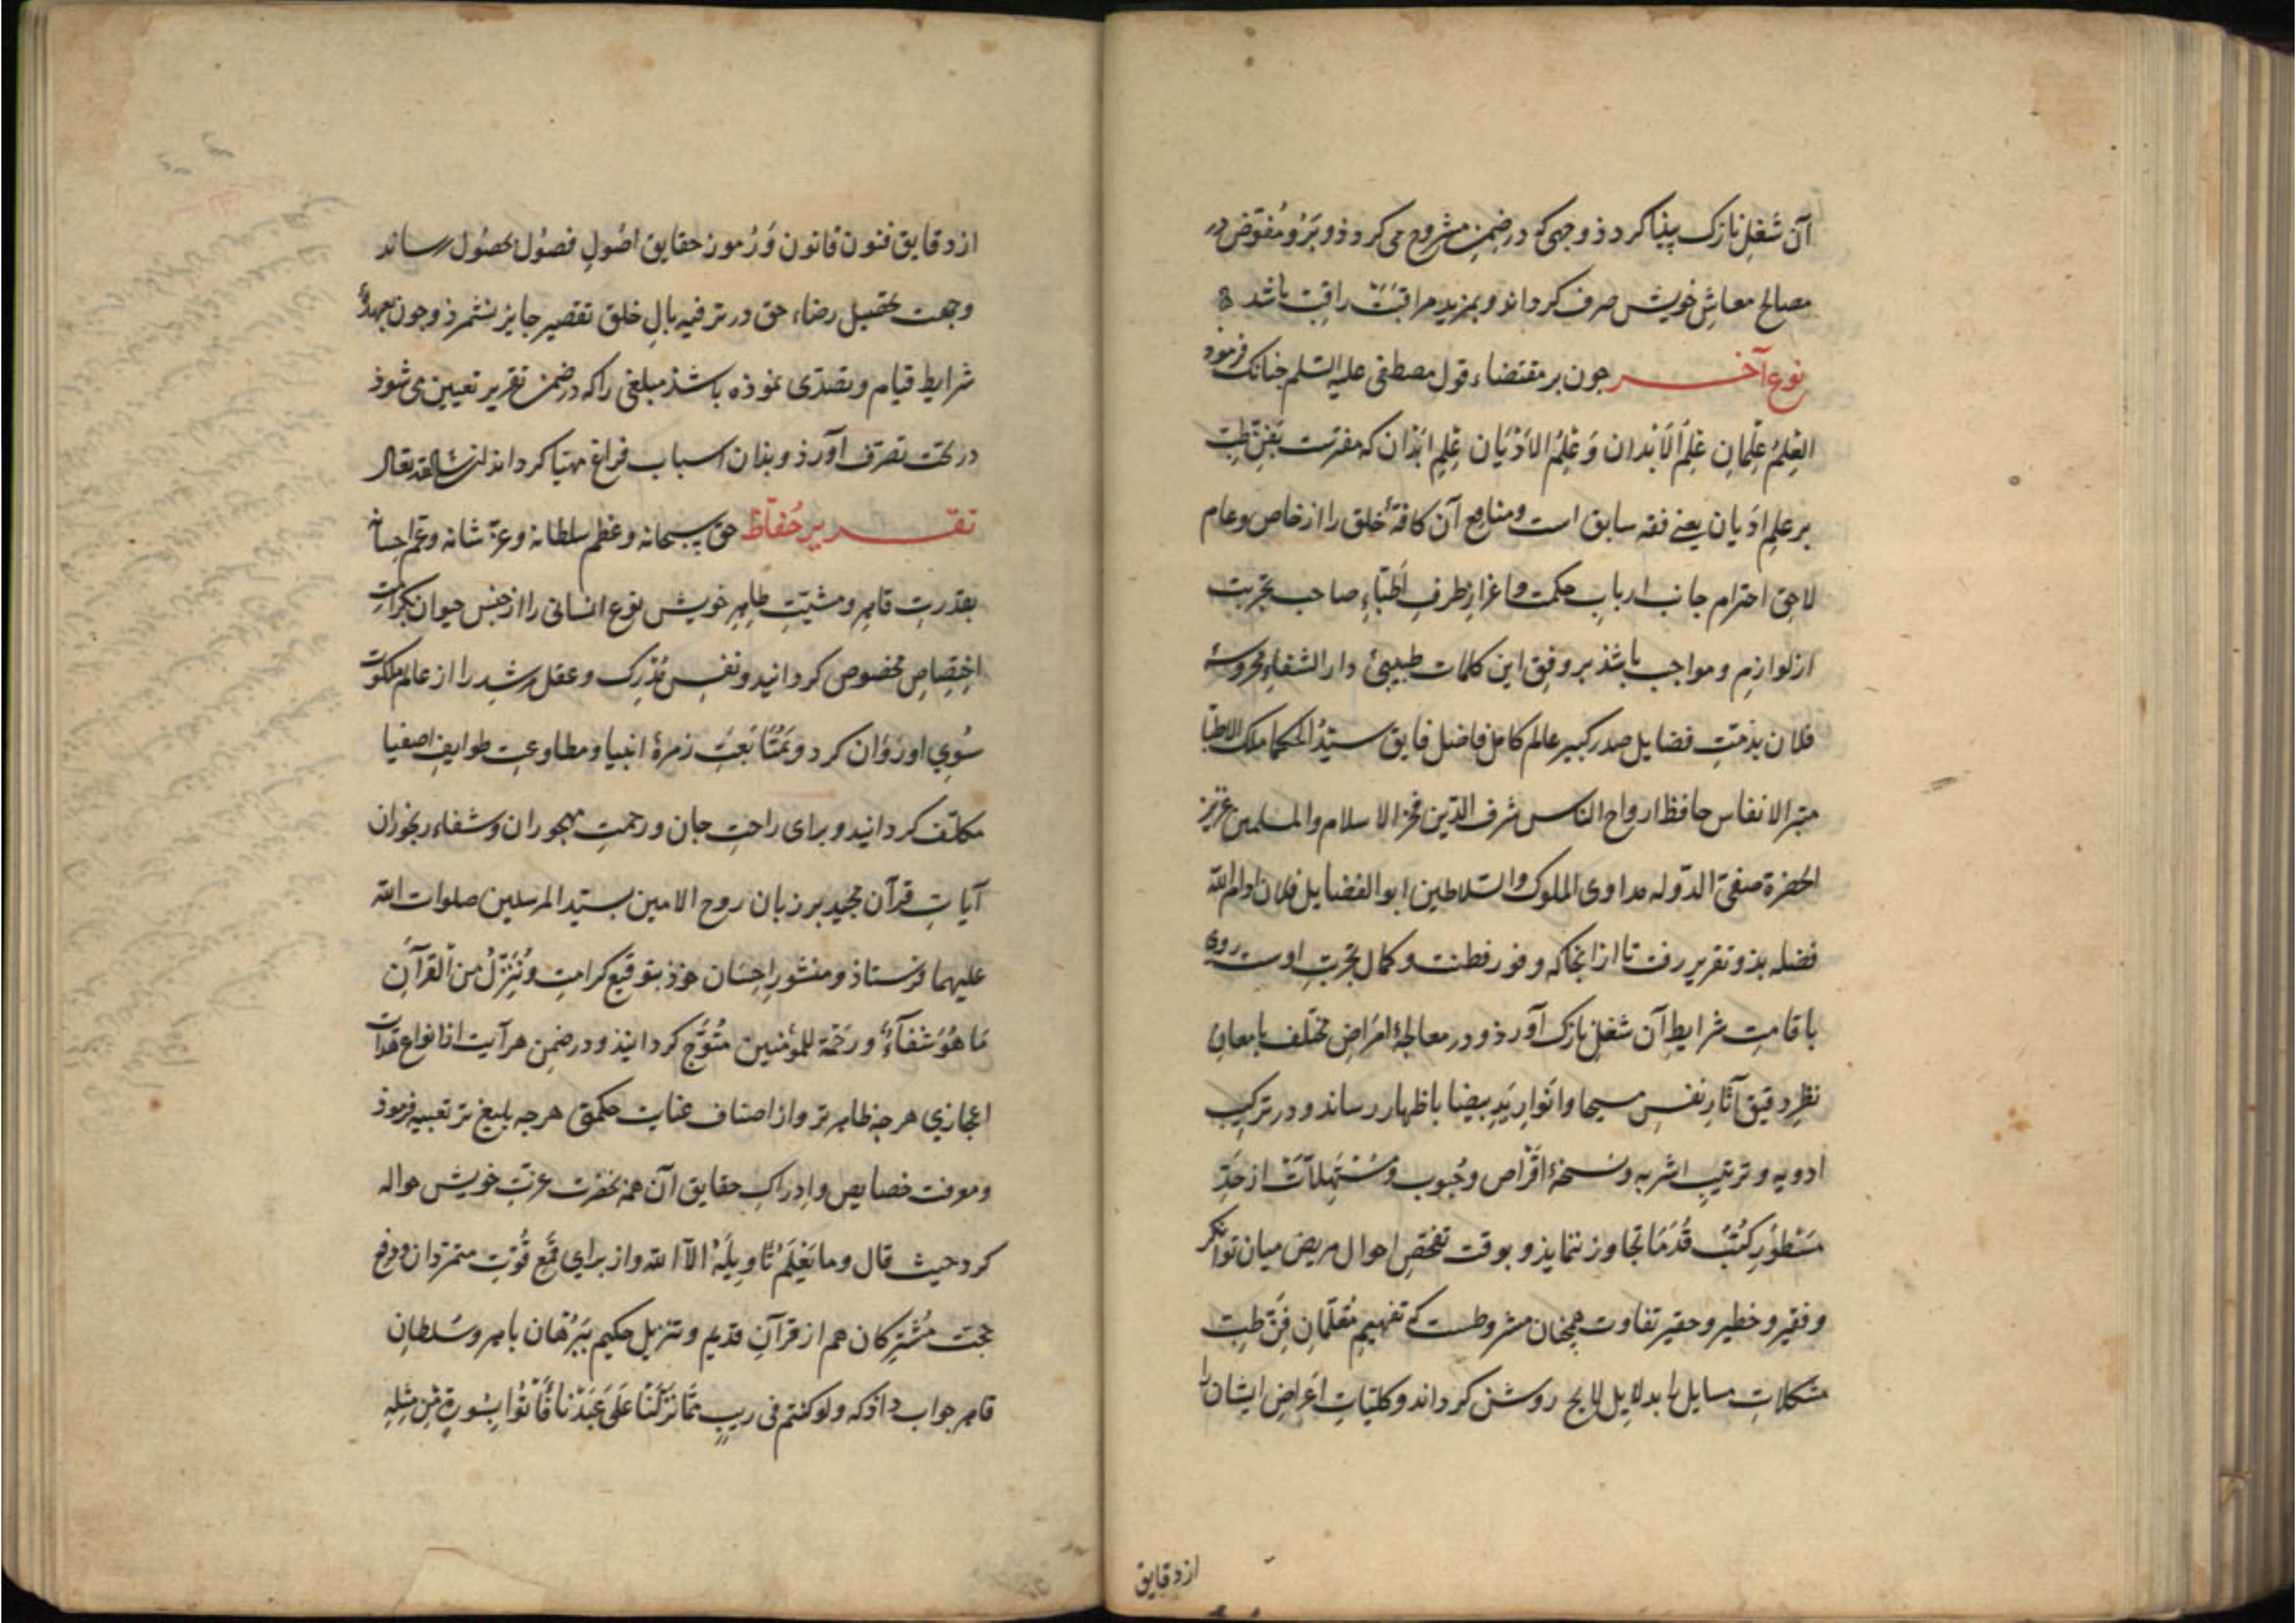 آن شغل نازک پیدا کردذ و وجهی که در ضمن مشروح می کردذ و بَرُو مُفوّض در
مصالح معاشِ خویش صرف کرداند و بمزید مراقبَتْ راقِبْ باشد
نوع آخر جون بر مقتضاء قول مصطفی علیه السلم جنانک فرمود
العِلمُ عِلمَانِ عِلْمُ الْاَبْدان وَ عِلمُ الادْیَان عِلمِ ابْدَان که مفسّرست بفنِ طِبْ
بر علمِ ادیان یعنی فقه سابق است و منافع آن کافۀ خلق را از خاص و عام
لاحق احترام جانب ارباب حکمت و اعزاز طرفِ اَطِبّاءِ صاحب تجربت
از لوازم و مواجب باشذ بر وفق این کلمات طبیبیِ دار الشفاء محروسۀ
فلان بذمّتِ فضایل صدر کبیر عالم کامل فاضل فایق سیّدُ الحکما ملک الاطبا
متبر الانفاس حافظ ارواح الناس شرف الدّین فخر الاسلام والمسلمین عزیز
الحضرة صفیّ الدّوله مداوی الملوک والسّلاطین ابو الفضایل فلان ادام الله
فضله بذو تقریر رفت تا از انجا که وفور فطنت و کمال تجربتِ اوست روی
باقامتِ شرایطِ آن شغلِ نازک آورذ و در معالجۀ امراضِ مختلف بامعانِ
نظرِ دقیق آثارِ نفسِ مسیحا و انوارِ یَدِ بیضا باظهار رساند و در ترکیب
ادویه و ترتیبِ اشربه و نسخۀ اقْراص و حُبوب و مُسْتَهِلاتْ از حَدِّ
مَسْطورِ کُتُبِ قُدَمَا تجاوز ننمایذ و بوقت تفحّصِ احوال مریض میان توانکر
و فقیر و خطیر و حقیر تفاوت همچنان مشروطست که تفهیمِ مُتعلّمانِ فنِّ طِبّ
مشکلاتِ مسایل را بدلایلِ لایح روشن کرداند و کلیّاتِ اَعراضِ ایشان را
از دقایق
از دقایق فنون قانون وَ رُموز حقایق اصُولِ فصُول بحصُول رساند
و جهت تحصیل رضاء حق در ترفیه بالِ خلق تقصیر جایز نشمرذ و جون بعهدۀ
شرایط قیام و تصدّی نموذه باشذ مبلغی را که در ضمن تقریر تعیین می شوذ
در تحت تصرّف آورذ و بذان اسباب فراغ مهیّا کرداند ان شا الله تعالی
تقریر حُفّاظ حق سبحانه و عظم سلطانه و عزّ شانه و عمّ احسانه
بقدرتِ قاهر و مشیّتِ ظاهر خویش نوعِ انسانی را از جنس حیوان بکرامتِ
اختِصاص مخصوص کردانید و نفسِ مُدْرِک و عقل مرشد را از عالم ملکوت
سُویِ او رَوان کرد و بمُتَابَعَتِ زمرۀ انبیا و مطاوعتِ طوایفِ اصفیا
مکلّف کردانید و برای راحتِ جان و رحمتِ مهجوران و شفاء رنجوران
آیاتِ قرآن مجید بر زبان روح الامین بسیّد المرسلین صلوات الله
علیهما فرستاذ و منشورِ احِسَان خوذ بتوقیع کرامتِ وَنُنَزِّلُ مِنَ القرآنِ
مَا هُوَ شفآءٌ و رَحْمَة للمؤمنین مُتَوَّج کردانیذ و در ضمنِ هر آیت از انواعِ
اعجازی هر جه ظاهر تر و از اصناف عنایت حکمتی هر جه بلیغ تر تعبیه فرموذ
و معرفت خصایص و اِدراکِ حقایق آن همه بحضرت عزّت خویش حواله
کرد حیث قال و ما یَعْلَمُ تاویلَهُ الّا الله و از برایِ قَمْعِ قُوّتِ متمرّدان و دفع
حجّت مُشْرِکان هم از قرآنِ قدیم و تنزیل حکیم بَبُرْهان باهر و سُلطانِ
قاهر جواب داذ که ولو کنتم فی ریبٍ مِمّا نَزَّلْنَا عَلَی عَبْدْنا فَأْتُوا بِسُورةٍ مِن مِثلِهِ